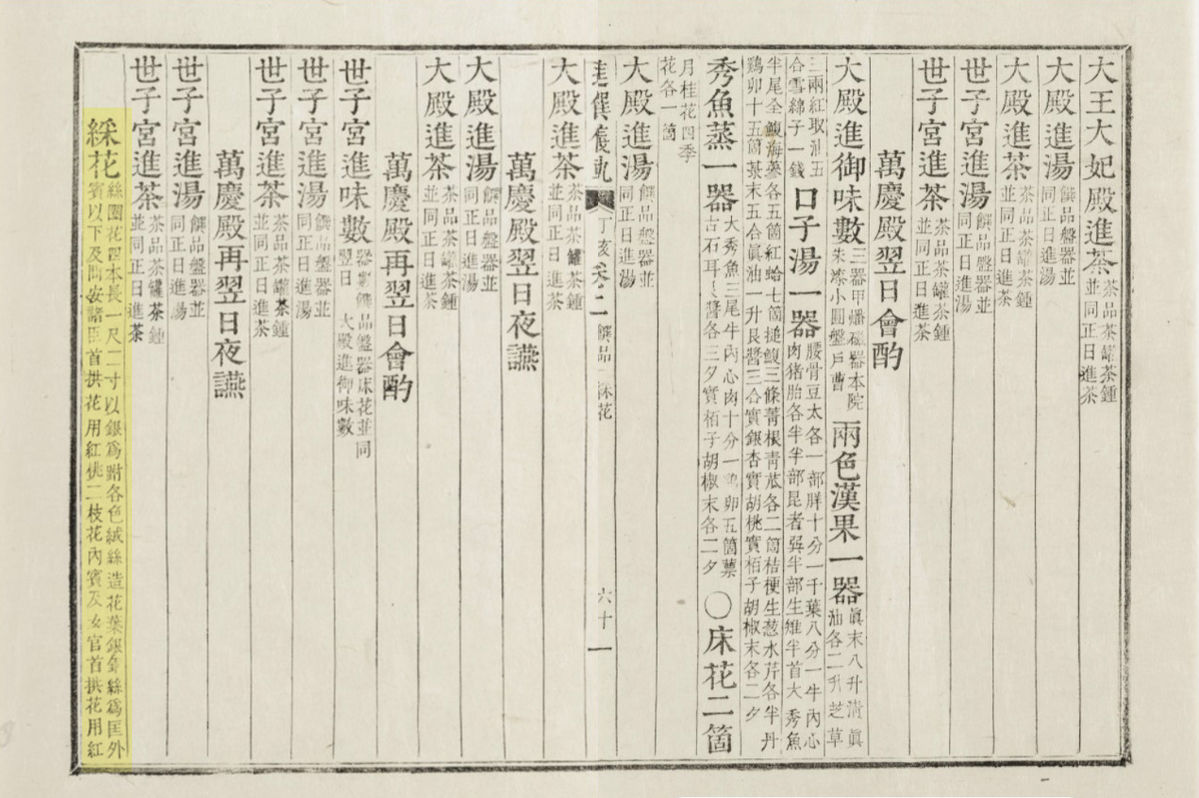 大王大妃殿進茶 茶品茶罐茶鍾並同正日進茶
大殿進湯 饌品盤器並同正日進湯
大殿進茶 茶品茶罐茶鍾並同正日進茶
世子宮進湯 饌品盤器並同正日進湯
世子宮進茶 茶品茶罐茶鍾並同正日進茶
萬慶殿翌日會酌
大殿進御味數 三器甲燔磁器本院朱漆小圓盤戶曹 兩色漢果一器 眞末八升淸眞油各二升芝草
三兩紅取油五合雪綿子一錢 口子湯一器 腰骨豆太各一部胖十分一千葉八分一牛內心肉猪胎各半半部昆者巽半部生雉半首大秀魚
半尾全鰒海蔘各五箇紅蛤七箇搥鰒三條菁根靑苽各二箇桔梗生葱水芹各半丹鷄卵十五箇菉末五合眞油一升艮醬三合實銀杏實胡桃實栢子胡椒末各二夕
秀魚蒸一器 大秀魚三尾牛內心肉十分一鷄卵五箇藁古石耳艮醬各三夕實栢子胡椒末各二夕 ○床花二箇
月桂花四季花各一箇
大殿進湯 饌品盤器並同正日進湯
進饌儀軌 丁亥 卷二 饌品 綵花 六十一
大殿進茶 茶品茶罐茶鍾並同正日進茶
萬慶殿翌日夜讌
大殿進湯 饌品盤器並同正日進湯
大殿進茶 茶品茶罐茶鍾並同正日進茶
萬慶殿再翌日會酌
世子宮進味數 器數饌品盤器床花並同翌日 大殿進御味數
世子宮進湯 饌品盤器並同正日進湯
世子宮進茶 茶品茶罐茶鍾並同正日進茶
萬慶殿再翌日夜讌
世子宮進湯 饌品盤器並同正日進湯
世子宮進茶 茶品茶罐茶鍾並同正日進茶
綵花 絲圈花四本長一尺二寸以銀爲跗各色絨絲造花葉銀鍮絲爲匡外賓以下及問安諸臣首拱花用紅桃二枝花內賓及女官首拱花用紅